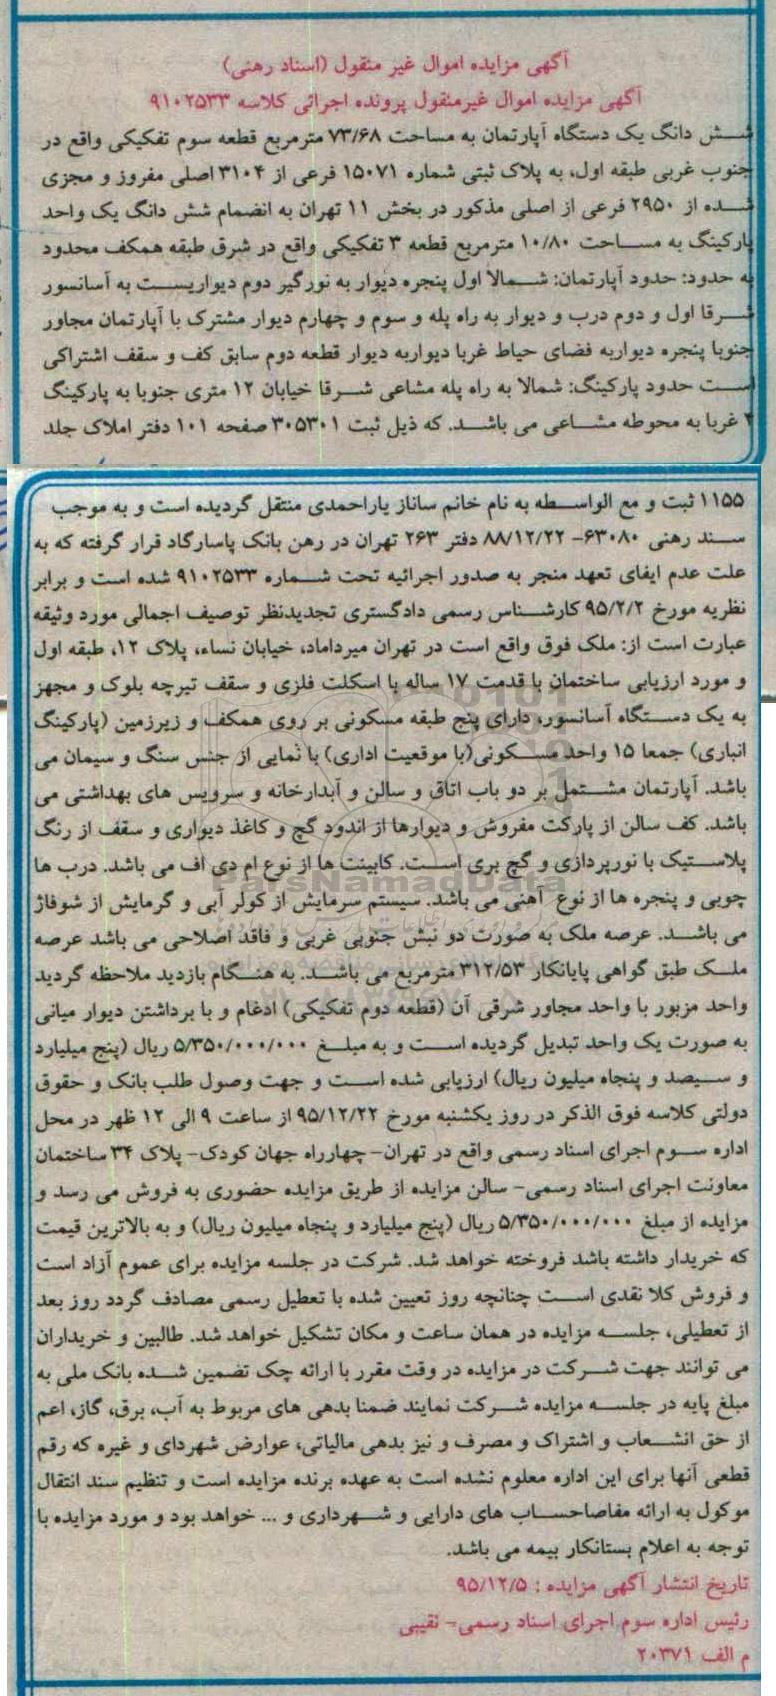 آگهی مزایده اموال غیر منقول (اسناد رهنی)
آگهی مزایده اموال غیرمنقول پرونده اجرائی کلاسه ۹۱۰۲۵۳۳
شش دانگ یک دستگاه آپارتمان به مساحت ۷۳/۶۸ مترمربع قطعه سوم تفکیکی واقع در
جنوب غربی طبقه اول، به پلاک ثبتی شماره ۱۵۰۷۱ فرعی از ۳۱۰۴ اصلی مفروز و مجزی
شده از ۲۹۵۰ فرعی از اصلی مذکور در بخش ۱۱ تهران به انضمام شش دانگ یک واحد
پارکینگ به مساحت ۱۰/۸۰ مترمربع قطعه ۳ تفکیکی واقع در شرق طبقه همکف محدود
به حدود: حدود آپارتمان: شمالا اول پنجره دیوار به نورگیر دوم دیواریست به آسانسور
شرقا اول و دوم درب و دیوار به راه پله و سوم و چهارم دیوار مشترک با آپارتمان مجاور
جنوبا پنجره دیواربه فضای حیاط غربا دیواربه دیوار قطعه دوم سابق کف و سقف اشتراکی
است حدود پارکینگ: شمالا به راه پله مشاعی شرقا خیابان ۱۲ متری جنوبا به پارکینگ
۴ غربا به محوطه مشاعی می باشد. که ذیل ثبت ۳۰۵۳۰۱ صفحه ۱۰۱ دفتر املاک جلد
۱۱۵۵ ثبت و مع الواسطه به نام خانم ساناز یاراحمدی منتقل گردیده است و به موجب
سند رهنی ۶۳۰۸۰- ۸۸/۱۲/۲۲ دفتر ۲۶۳ تهران در رهن بانک پاسارگاد قرار گرفته که به
علت عدم ایفای تعهد منجر به صدور اجرائیه تحت شماره ۹۱۰۲۵۳۳ شده است و برابر
نظریه مورخ ۹۵/۲/۲ کارشناس رسمی دادگستری تجدیدنظر توصیف اجمالی مورد وثیقه
عبارت است از: ملک فوق واقع است در تهران میرداماد، خیابان نساء، پلاک ۱۲، طبقه اول
و مورد ارزیابی ساختمان با قدمت ۱۷ ساله با اسکلت فلزی و سقف تیرچه بلوک و مجهز
به یک دستگاه آسانسور، دارای پنج طبقه مسکونی بر روی همکف و زیرزمین (پارکینگ
انباری) جمعا ۱۵ واحد مسکونی(با موقعیت اداری) با نمایی از جنس سنگ و سیمان می
باشد. آپارتمان مشتمل بر دو باب اتاق و سالن و آبدارخانه و سرویس های بهداشتی می
باشد. کف سالن از پارکت مفروش و دیوارها از اندود گچ و کاغذ دیواری و سقف از رنگ
پلاستیک با نورپردازی و گچ بری است. کابینت ها از نوع ام دی اف می باشد. درب ها
چوبی و پنجره ها از نوع آهنی می باشد. سیستم سرمایش از کولر آبی و گرمایش از شوفاژ
می باشد. عرصه ملک به صورت دو نبش جنوبی غربی و فاقد اصلاحی می باشد عرصه
ملک طبق گواهی پایانکار ۳۱۲/۵۳ مترمربع می باشد. به هنگام بازدید ملاحظه گردید
واحد مزبور با واحد مجاور شرقی آن (قطعه دوم تفکیکی) ادغام و با برداشتن دیوار میانی
به صورت یک واحد تبدیل گردیده است و به مبلغ ۵/۳۵۰/۰۰۰/۰۰۰ ریال (پنج میلیارد
و سیصد و پنجاه میلیون ریال) ارزیابی شده است و جهت وصول طلب بانک و حقوق
دولتی کلاسه فوق الذکر در روز یکشنبه مورخ ۹۵/۱۲/۲۲ از ساعت ۹ الی ۱۲ ظهر در محل
اداره سوم اجرای اسناد رسمی واقع در تهران- چهارراه جهان کودک- پلاک ۳۴ ساختمان
معاونت اجرای اسناد رسمی- سالن مزایده از طریق مزایده حضوری به فروش می رسد و
مزایده از مبلغ ۵/۳۵۰/۰۰۰/۰۰۰ ریال (پنج میلیارد و پنجاه میلیون ریال) و به بالاترین قیمت
که خریدار داشته باشد فروخته خواهد شد. شرکت در جلسه مزایده برای عموم آزاد است
و فروش کلا نقدی است چنانچه روز تعیین شده با تعطیل رسمی مصادف گردد روز بعد
از تعطیلی، جلسه مزایده در همان ساعت و مکان تشکیل خواهد شد. طالبین و خریداران
می توانند جهت شرکت در مزایده در وقت مقرر با ارائه چک تضمین شده بانک ملی به
مبلغ پایه در جلسه مزایده شرکت نمایند ضمنا بدهی های مربوط به آب، برق، گاز، اعم
از حق انشعاب و اشتراک و مصرف و نیز بدهی مالیاتی، عوارض شهردای و غیره که رقم
قطعی آنها برای این اداره معلوم نشده است به عهده برنده مزایده است و تنظیم سند انتقال
موکول به ارائه مفاصاحساب های دارایی و شهرداری و ... خواهد بود و مورد مزایده با
توجه به اعلام بستانکار بیمه می باشد.
تاریخ انتشار آگهی مزایده : ۹۵/۱۲/۵
رئیس اداره سوم اجرای اسناد رسمی- نقیبی
م الف ۲۰۳۷۱
ParsNamadData